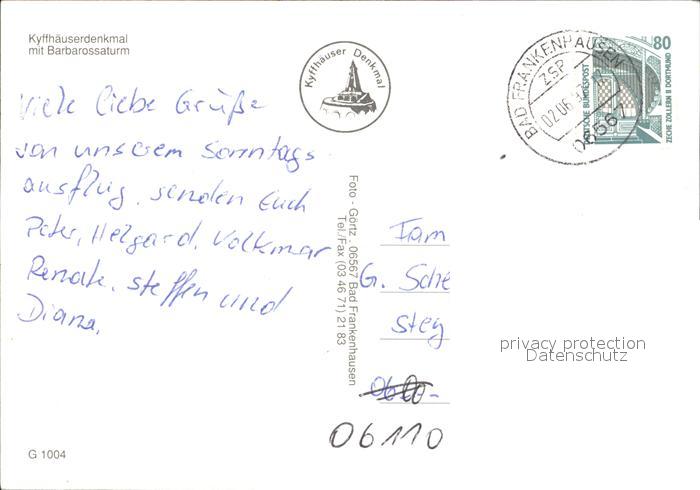 Kyffhäuserdenkmal
mit Barbarossaturm
Kyffhäuser Denkmal
BAD FRANKENHAUSEN
ZSP
02.06.
06567
80
DEUTSCHE BUNDESPOST
ZECHE ZOLLERN II DORTMUND
Viele liebe Grüße
von unserem Sonntags
ausflug, senden Euch
Peter, Helgard, Volkmar
Renate, Steffen und
Diana.
Foto - Görtz . 06567 Bad Frankenhausen
Tel./Fax (03 46 71) 21 83
Fam
G. Sche
Steg
06110
privacy protection
Datenschutz
G 1004